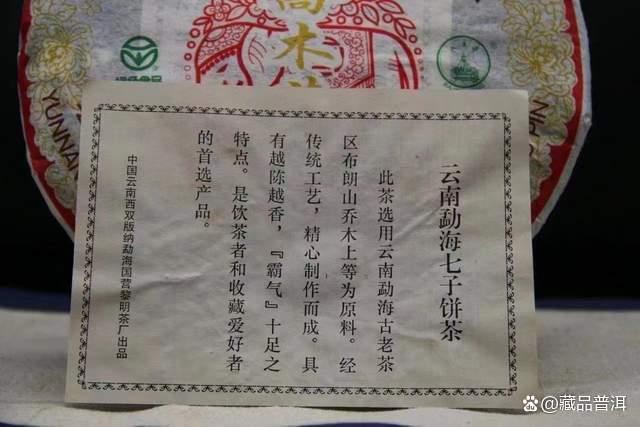 云南勐海七子饼茶
此茶选用云南勐海古老茶
区布朗山乔木上等为原料。经
传统工艺，精心制作而成。具
有越陈越香，『霸气』十足之
特点。是饮茶者和收藏爱好者
的首选产品。
中国云南西双版纳勐海国营黎明茶厂出品
乔木
绿色食品
YUNNA
藏品普洱